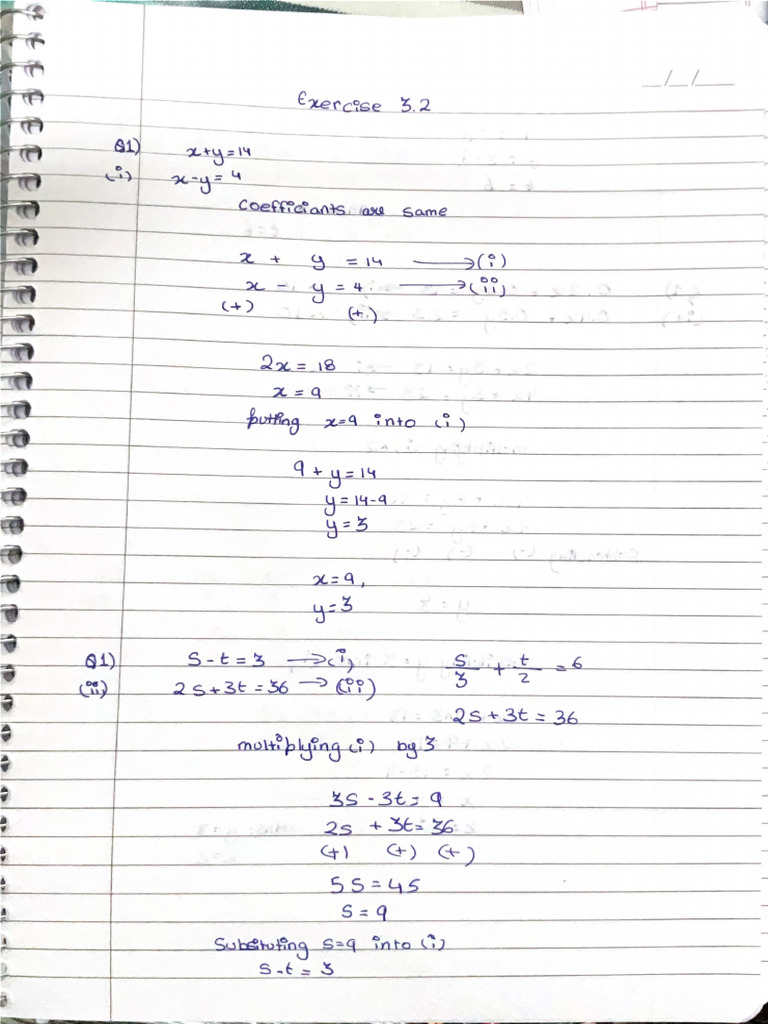 __/__/____
Exercise 3.2
Q1) x+y=14
(i) x-y=4
Coefficiants are same
x + y = 14 ⟶(i)
x - y = 4 ⟶(ii)
(+) (+)
2x = 18
x = 9
putting x=9 into (i)
9 + y = 14
y = 14-9
y = 3
x=9,
y=3
Q1) S-t=3 ⟶(i) S/3 + t/2 = 6
(ii) 2S+3t=36 → (ii)
2S+3t=36
multiplying (i) by 3
3S-3t=9
2S +3t=36
(+) (+) (+)
5S=45
S=9
Subsituting S=9 into (i)
S-t=3